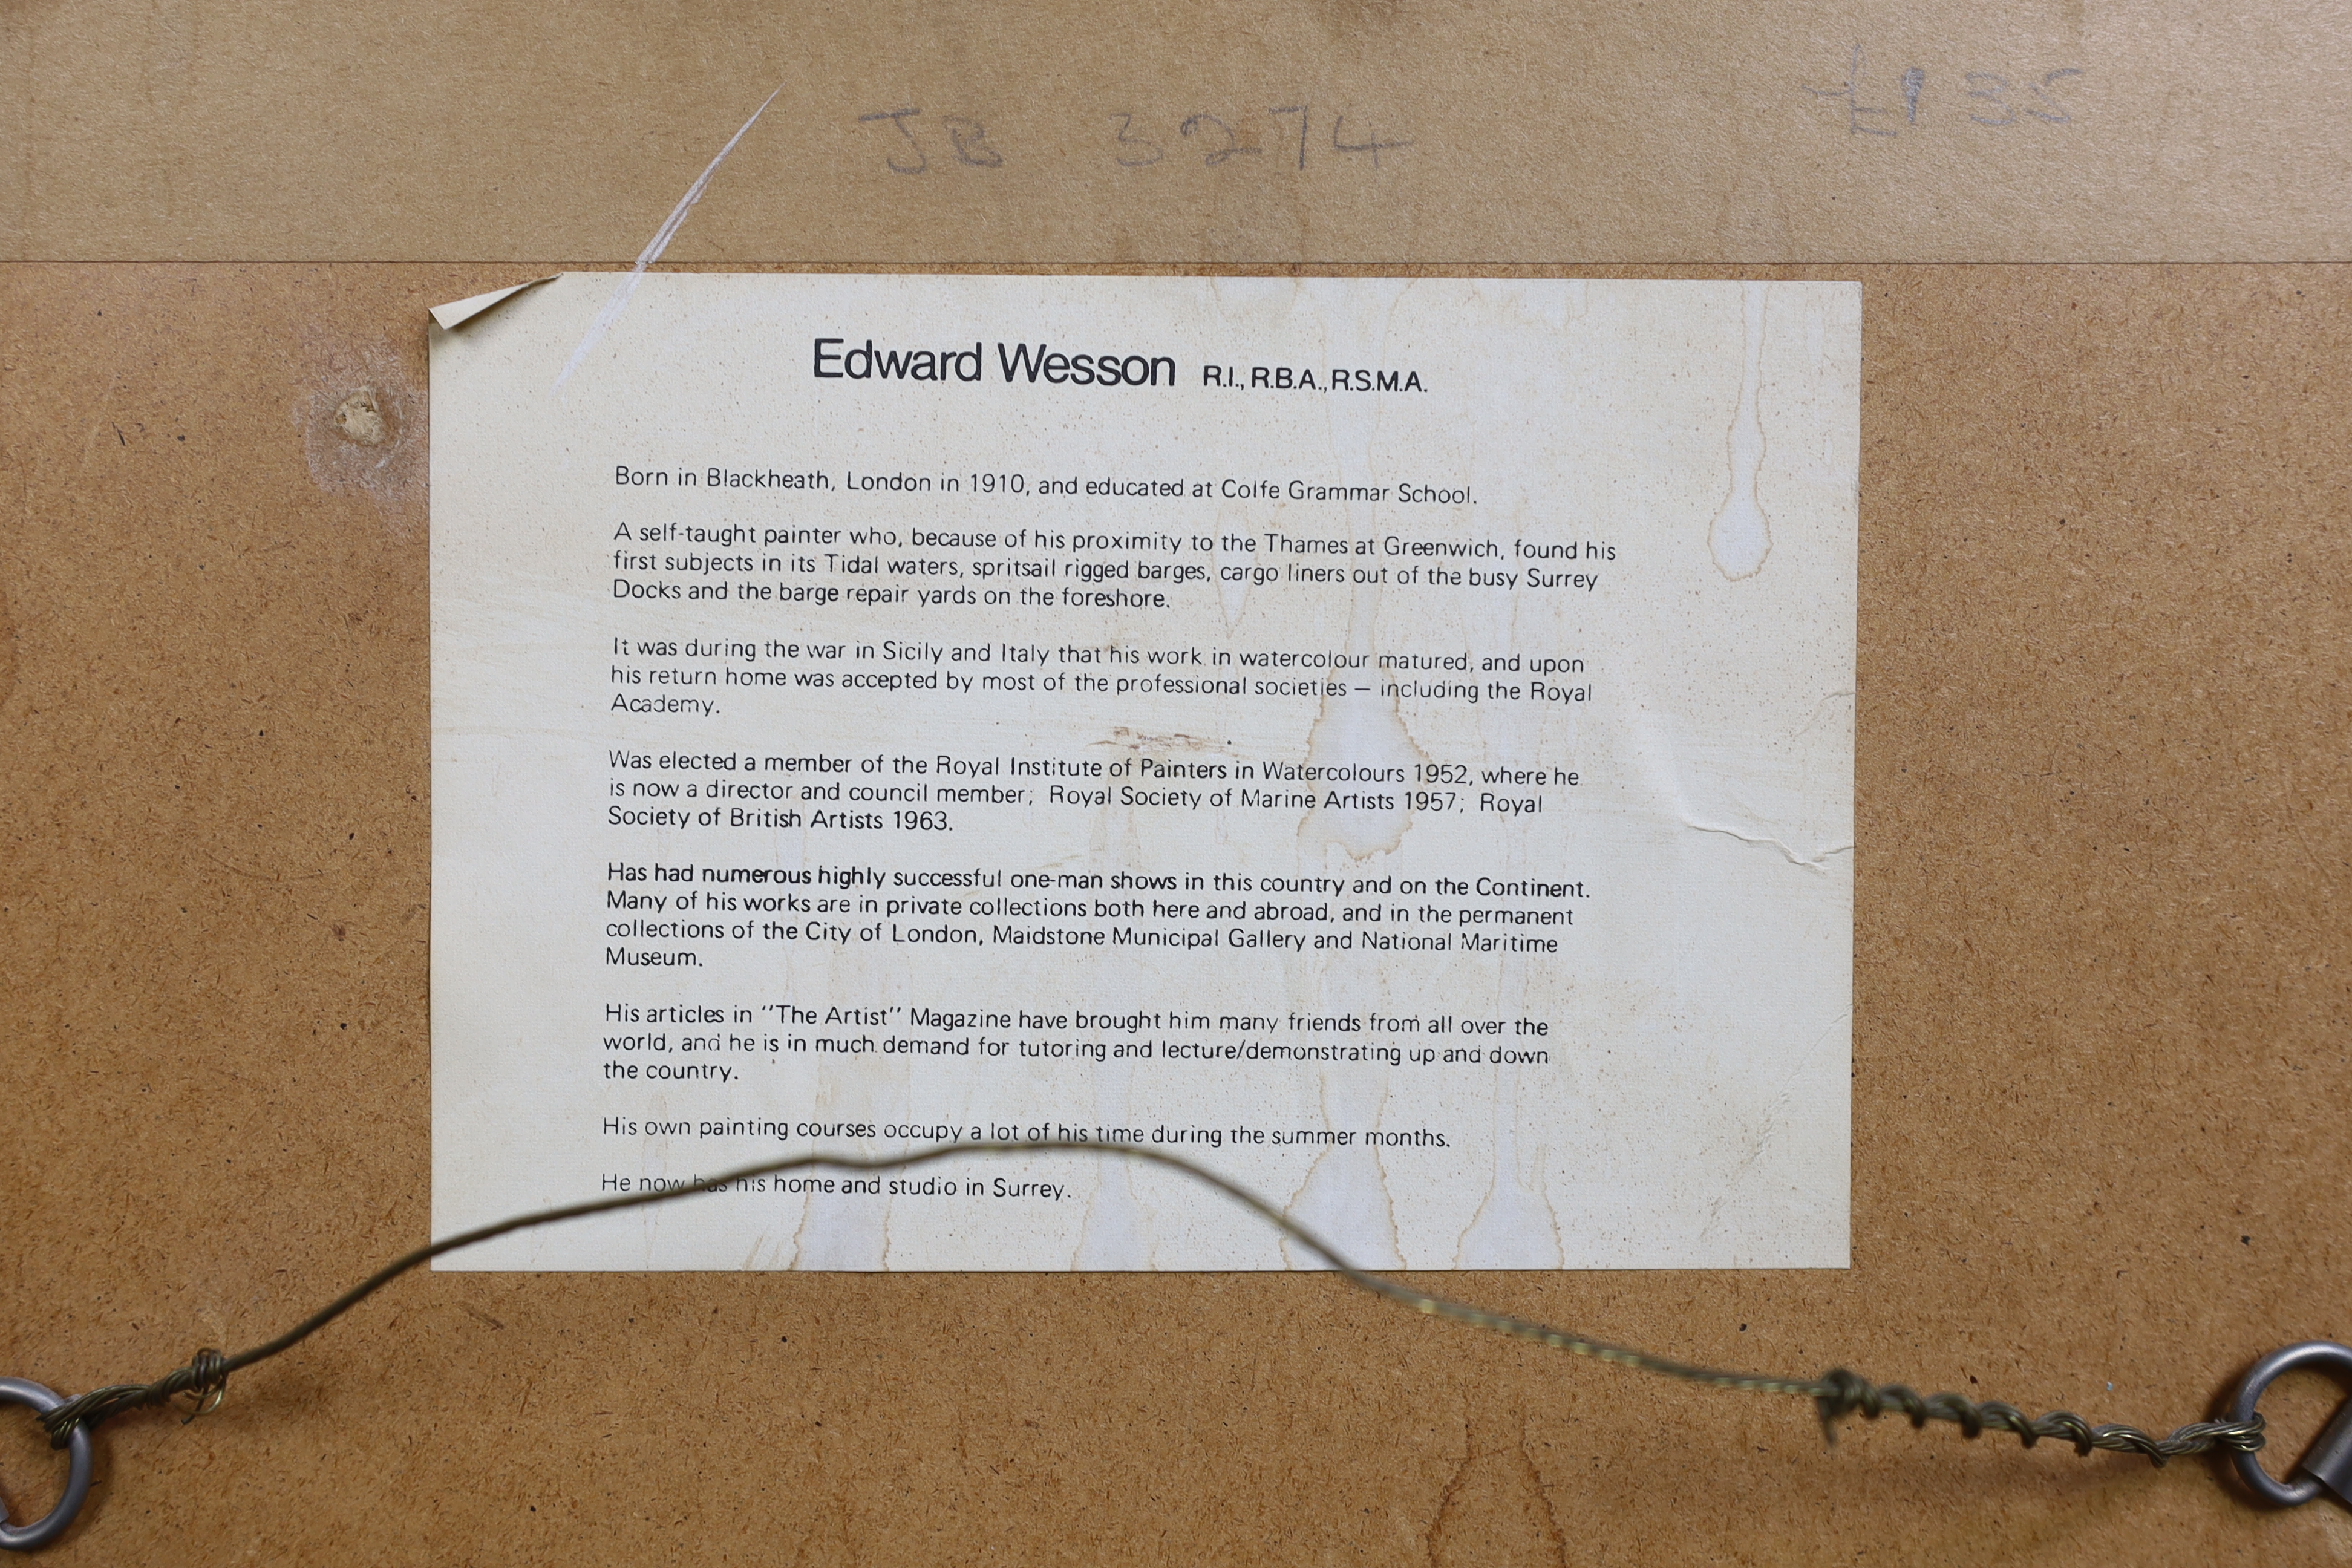 JB 3274 £135
Edward Wesson R.I., R.B.A., R.S.M.A.
Born in Blackheath, London in 1910, and educated at Colfe Grammar School.
A self-taught painter who, because of his proximity to the Thames at Greenwich, found his
first subjects in its Tidal waters, spritsail rigged barges, cargo liners out of the busy Surrey
Docks and the barge repair yards on the foreshore.
It was during the war in Sicily and Italy that his work in watercolour matured, and upon
his return home was accepted by most of the professional societies — including the Royal
Academy.
Was elected a member of the Royal Institute of Painters in Watercolours 1952, where he
is now a director and council member; Royal Society of Marine Artists 1957; Royal
Society of British Artists 1963.
Has had numerous highly successful one-man shows in this country and on the Continent.
Many of his works are in private collections both here and abroad, and in the permanent
collections of the City of London, Maidstone Municipal Gallery and National Maritime
Museum.
His articles in "The Artist" Magazine have brought him many friends from all over the
world, and he is in much demand for tutoring and lecture/demonstrating up and down
the country.
His own painting courses occupy a lot of his time during the summer months.
He now has his home and studio in Surrey.